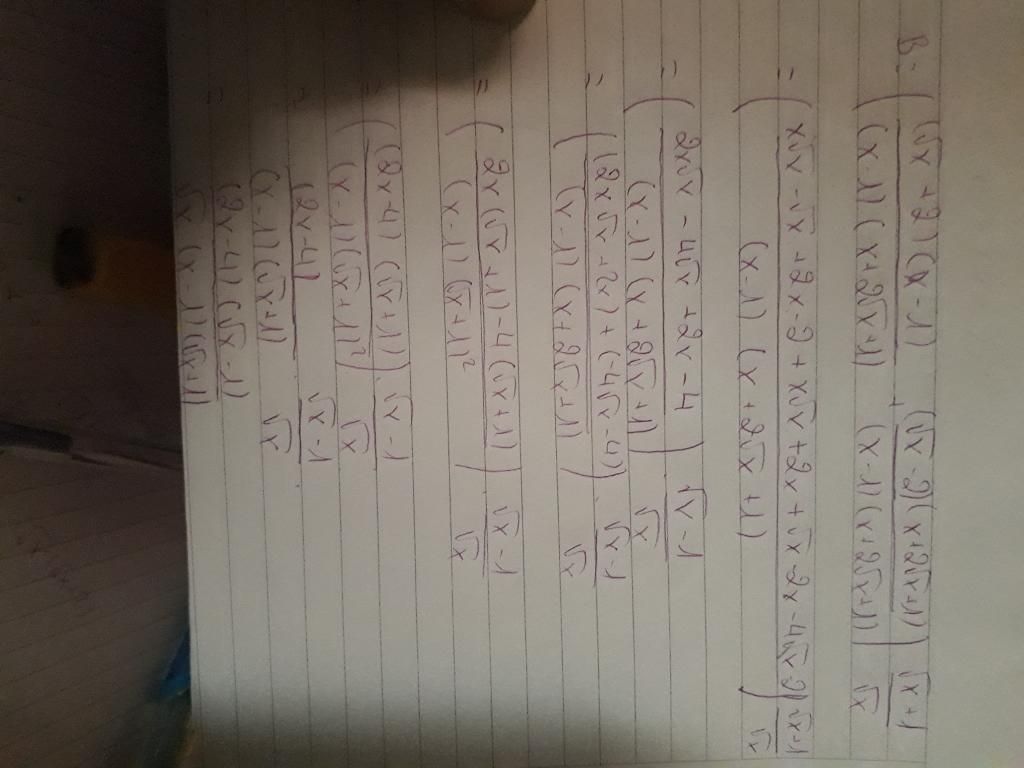 B = ( (√x + 2)(x - 1) / (x - 1)(x + 2√x + 1) + (√x - 2)(x + 2√x + 1) / (x - 1)(x + 2√x + 1) ) √x + 1 / √x
= ( x√x - √x + 2x - 2 + x√x + 2x + √x - 2x - 4√x - 2 / (x - 1)(x + 2√x + 1) ) √x + 1 / √x
= ( 2x√x - 4√x + 2x - 4 / (x - 1)(x + 2√x + 1) ) √x - 1 / √x
= ( (2x√x + 2x) + (-4√x - 4) / (x - 1)(x + 2√x + 1) ) . √x - 1 / √x
= ( 2x(√x + 1) - 4(√x + 1) / (x - 1)(√x + 1)² ) √x - 1 / √x
= ( (2x - 4)(√x + 1) / (x - 1)(√x + 1)² ) √x - 1 / √x
= (2x - 4) / (x - 1)(√x + 1) . √x - 1 / √x
= (2x - 4)(√x - 1) / √x(x - 1)(√x + 1)